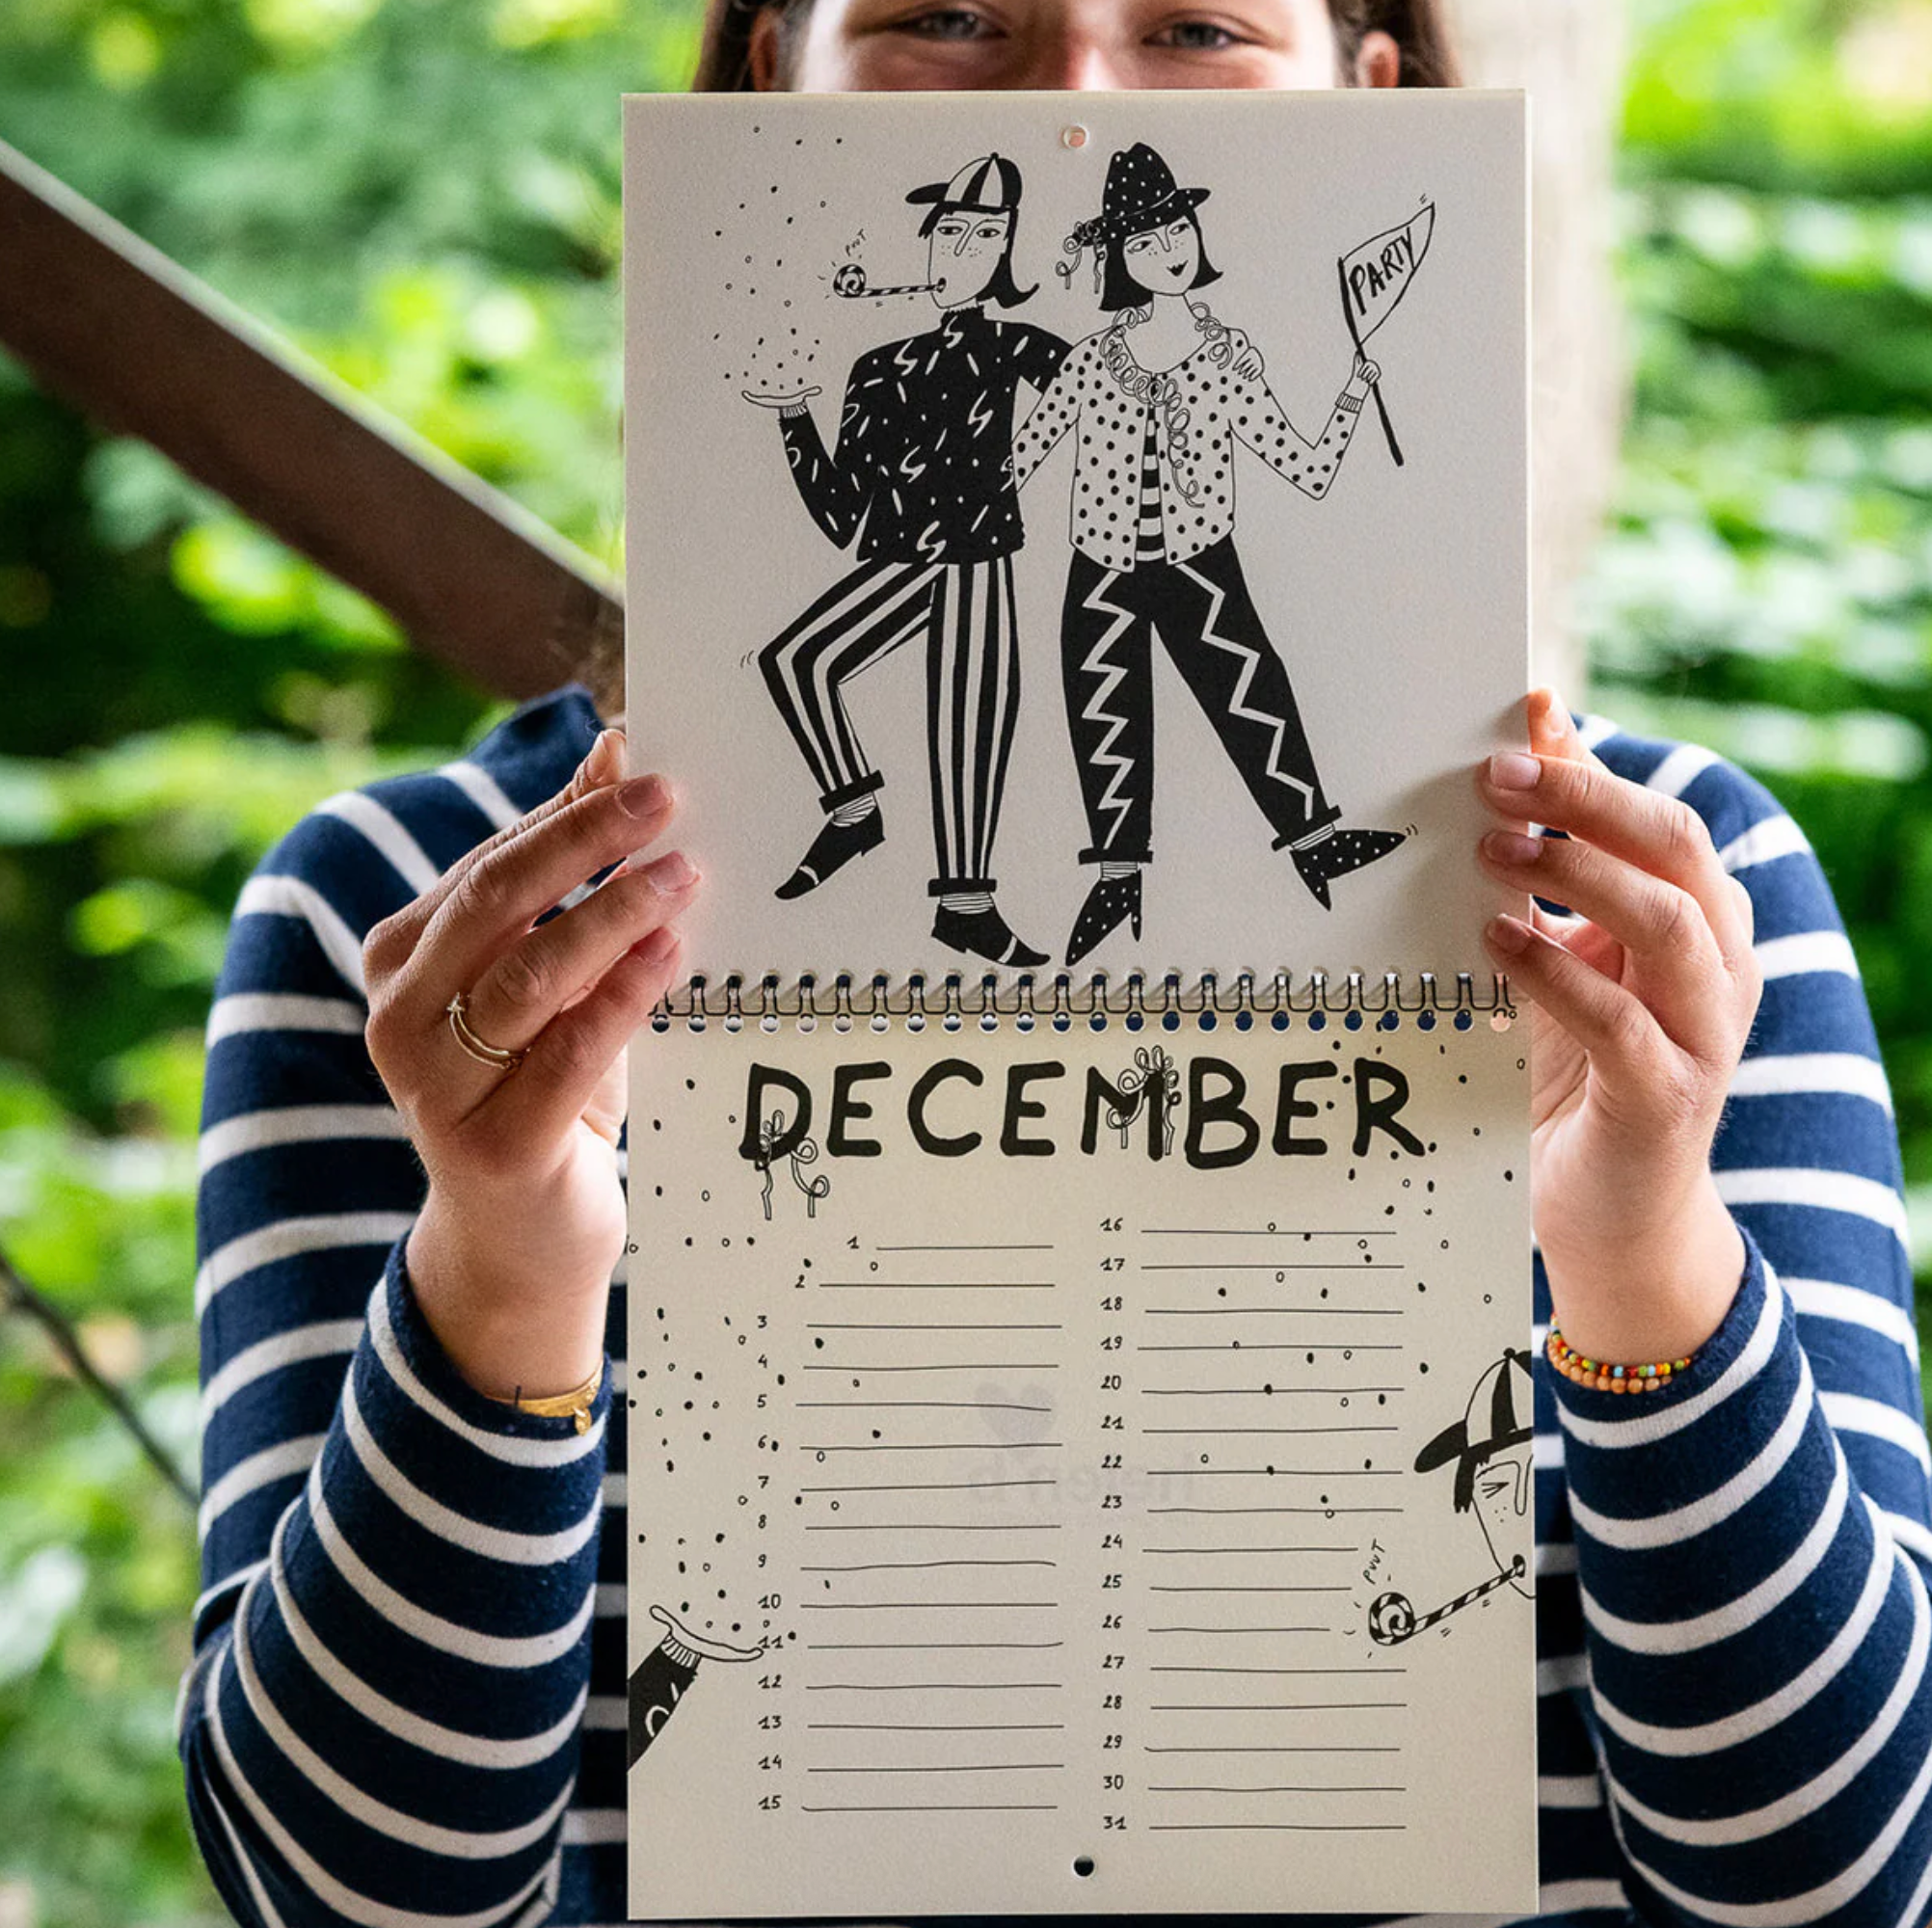 PVVT
PARTY
DECEMBER
1
2
3
4
5
6
7
8
9
10
11
12
13
14
15
16
17
18
19
20
21
22
23
24
25
26
27
28
29
30
31
PVVT